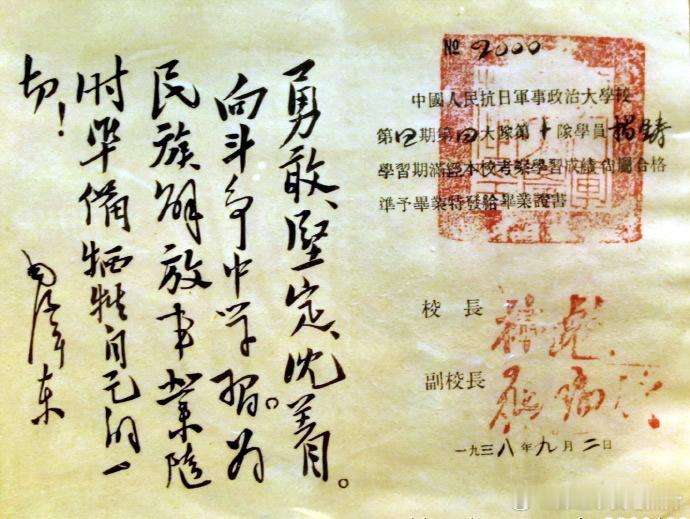 勇敢、堅定、沈着。
向斗争中学習。为
民族解放事業隨
时準備牺牲自己的一
切！
毛泽东
№ 2000
中國人民抗日軍事政治大學校
第四期第四大隊第十隊學員楊鑄
學習期滿經本校考察學習成績尚屬合格
準予畢業特發給畢業證書
校長 林彪
副校長 羅瑞卿
一九三八年九月二日